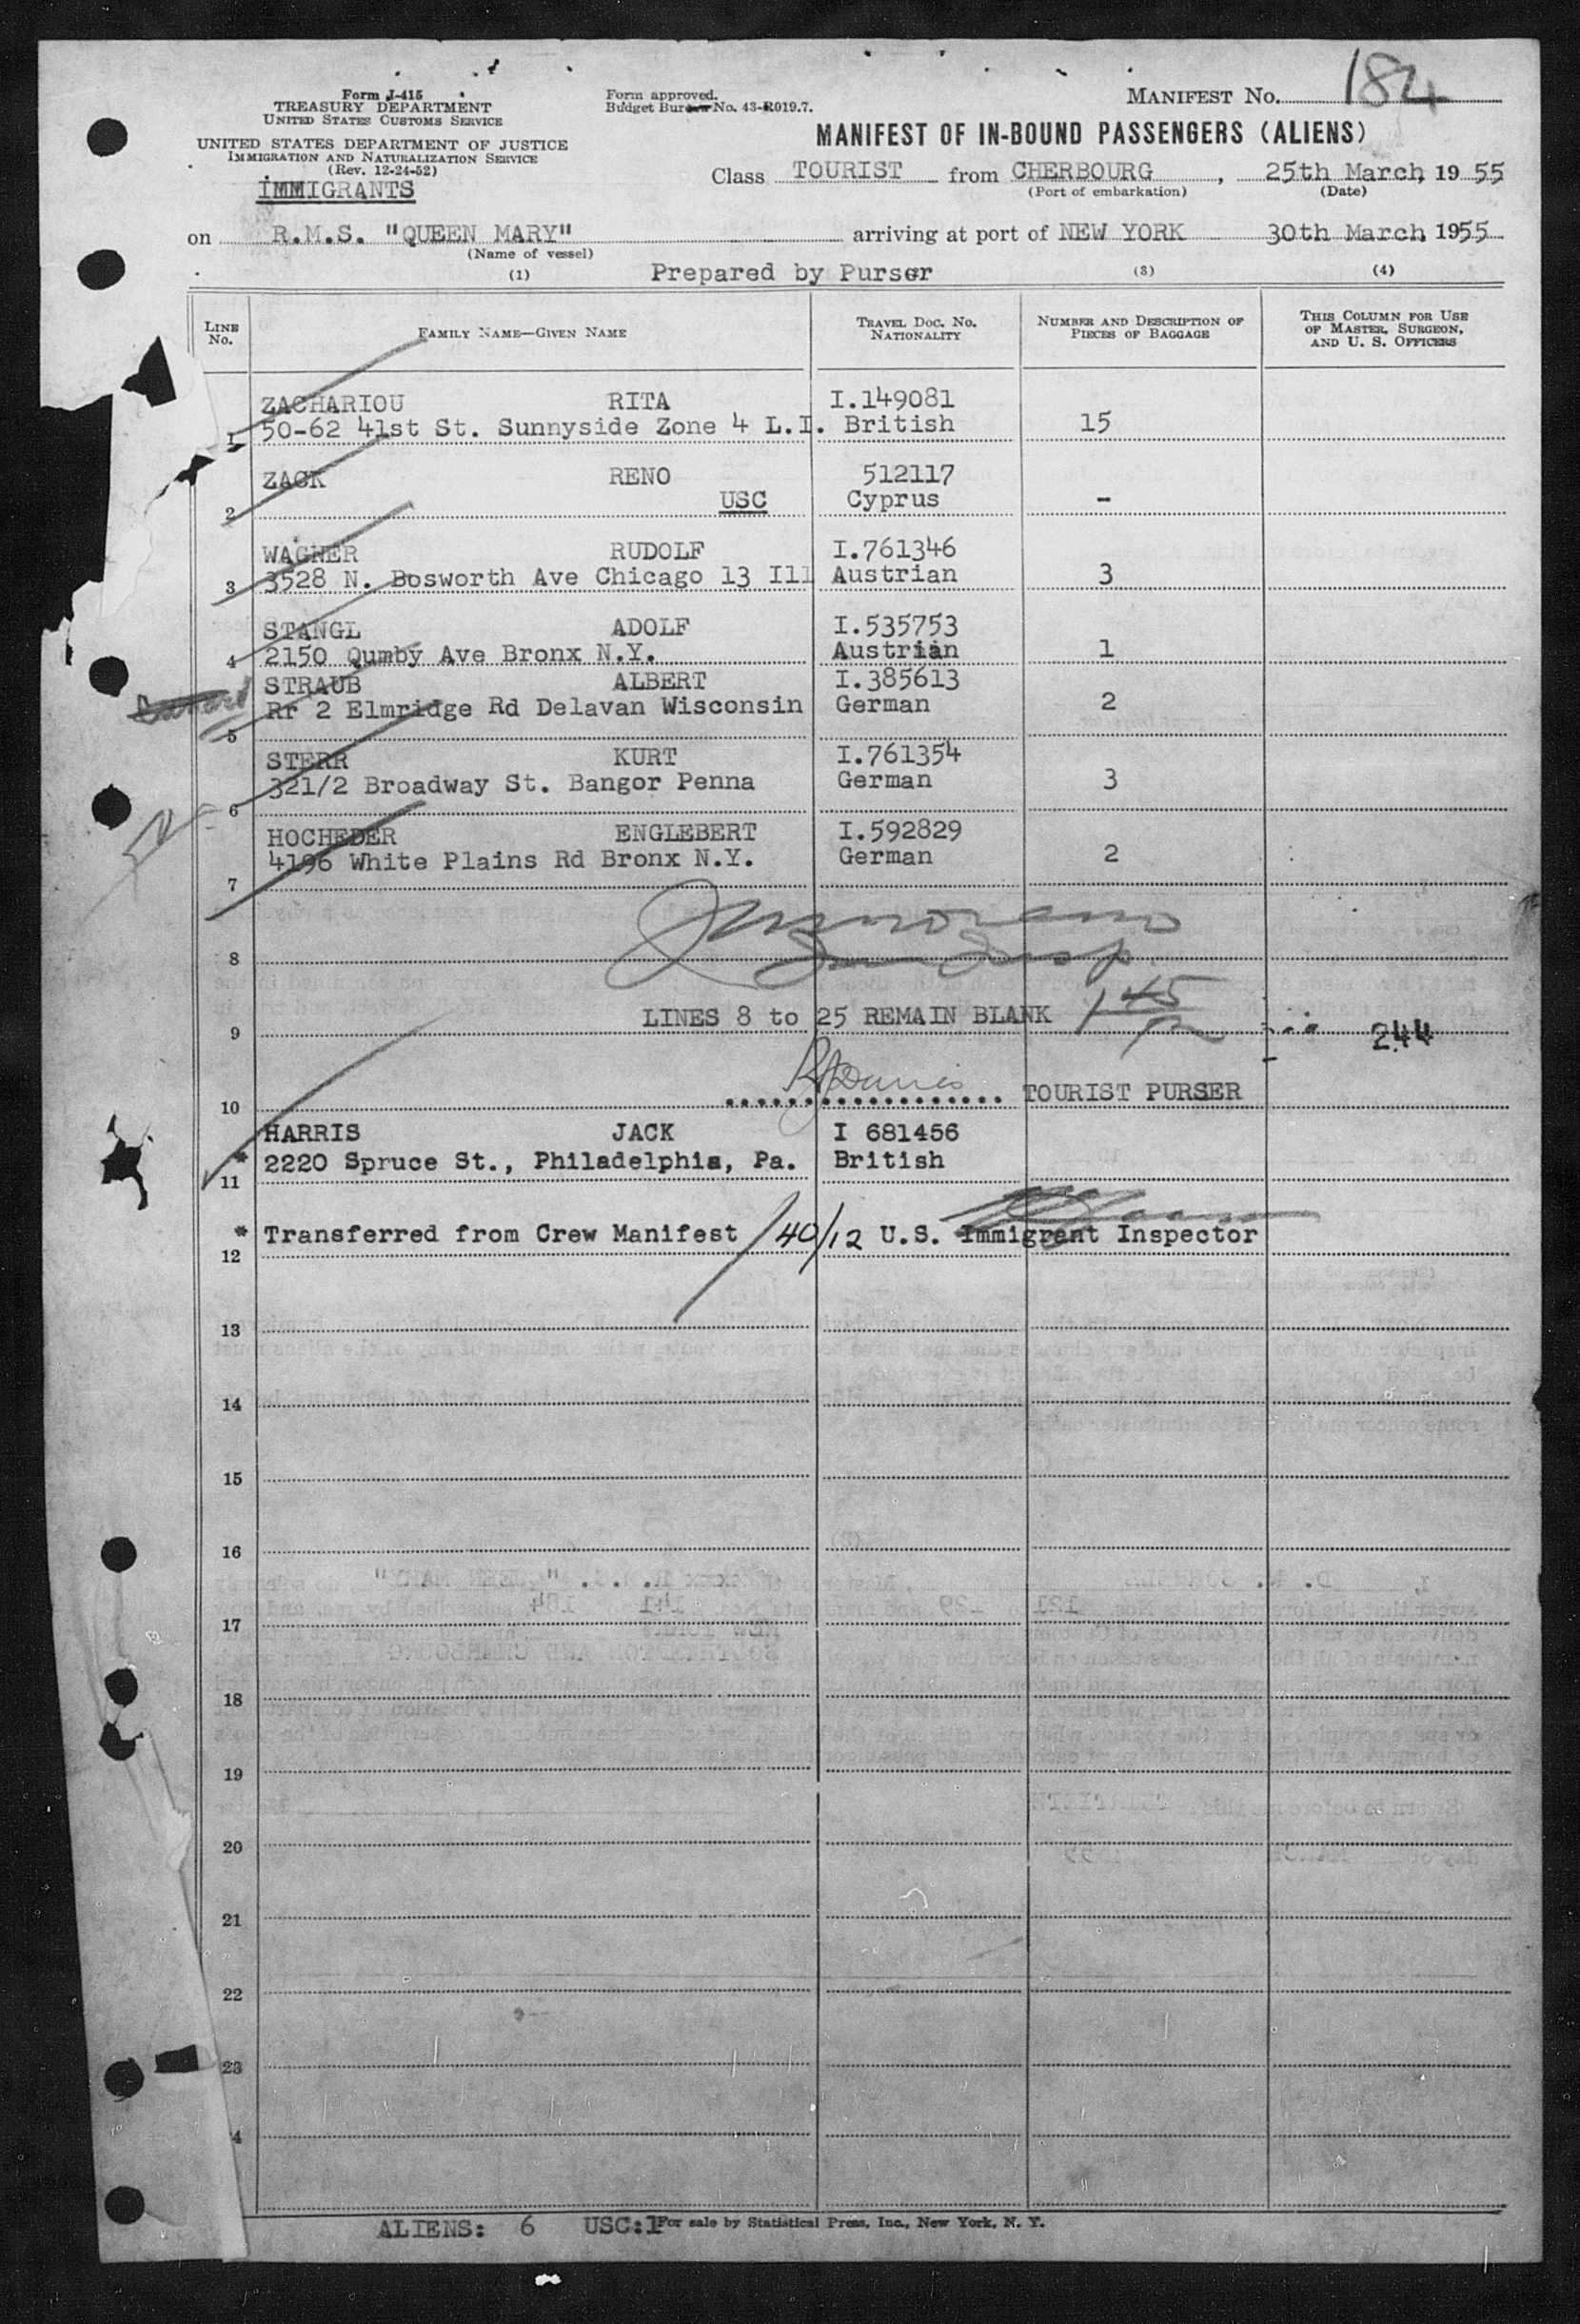 Form I-415
TREASURY DEPARTMENT
UNITED STATES CUSTOMS SERVICE
UNITED STATES DEPARTMENT OF JUSTICE
IMMIGRATION AND NATURALIZATION SERVICE
(Rev. 12-24-52)
IMMIGRANTS
Form approved.
Budget Bureau No. 43-R019.7.
MANIFEST NO. 184
MANIFEST OF IN-BOUND PASSENGERS (ALIENS)
Class TOURIST from CHERBOURG, 25th March, 1955
(Port of embarkation) (Date)
on R.M.S. "QUEEN MARY" arriving at port of NEW YORK 30th March, 1955
(Name of vessel)
(1) Prepared by Purser (3) (4)
LINE NO. FAMILY NAME—GIVEN NAME TRAVEL DOC. NO. NATIONALITY NUMBER AND DESCRIPTION OF PIECES OF BAGGAGE THIS COLUMN FOR USE OF MASTER, SURGEON, AND U. S. OFFICERS
ZACHARIOU RITA I.149081
1 50-62 41st St. Sunnyside Zone 4 L.I. British 15
ZACK RENO 512117
2 USC Cyprus -
WAGNER RUDOLF I.761346
3 3528 N. Bosworth Ave Chicago 13 Ill Austrian 3
STANGL ADOLF I.535753
4 2150 Qumby Ave Bronx N.Y. Austrian 1
STRAUB ALBERT I.385613
Rr 2 Elmridge Rd Delavan Wisconsin German 2
5
STERR KURT I.761354
321/2 Broadway St. Bangor Penna German 3
6
HOCHEDER ENGLEBERT I.592829
4196 White Plains Rd Bronx N.Y. German 2
7
8
LINES 8 to 25 REMAIN BLANK
9 244
10 TOURIST PURSER
HARRIS JACK I 681456
* 2220 Spruce St., Philadelphia, Pa. British
11
* Transferred from Crew Manifest 40/12 U.S. Immigrant Inspector
12
13
14
15
16
17
18
19
20
21
22
23
4
ALIENS: 6 USC:1 For sale by Statistical Press, Inc., New York, N. Y.